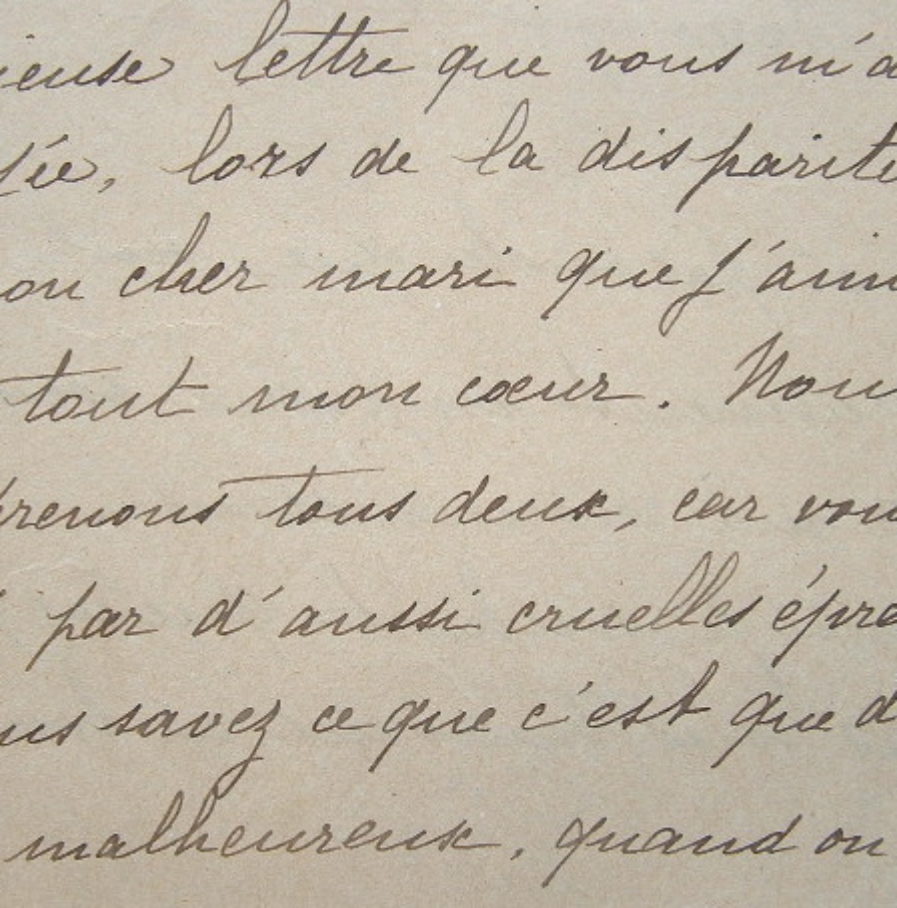 ieuse lettre que vous m'a
sée, lors de la dispariti
on cher mari que j'aim
tout mon cœur. Nou
prenons tous deux, car vou
par d'aussi cruelles épre
us savez ce que c'est que d
malheureux, quand on